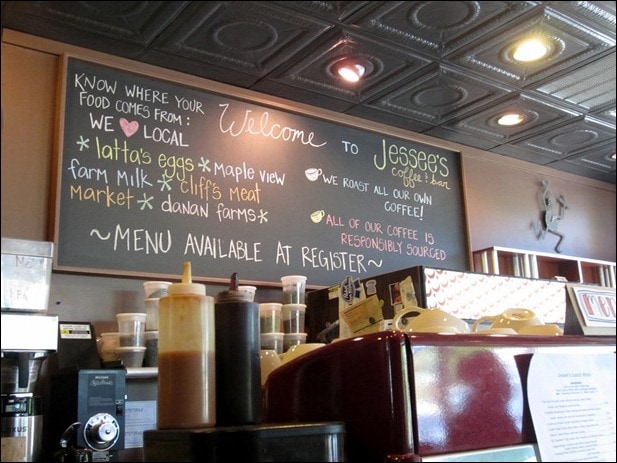 KNOW WHERE YOUR
FOOD COMES FROM:
WE LOCAL
latta's eggs maple view
farm milk cliff's meat
market danan farms
~MENU AVAILABLE AT REGISTER~
Welcome TO Jessee's
coffee & bar
WE ROAST ALL OUR OWN
COFFEE!
ALL OF OUR COFFEE IS
RESPONSIBLY SOURCED